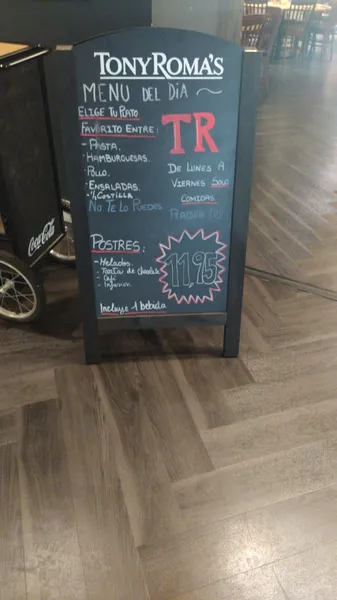 TONY ROMA'S
MENU DEL DIA
ELIGE TU PLATO
FAVORITO ENTRE:
- PASTA.
- HAMBURGUESAS.
- POLLO.
- ENSALADAS.
- 1/4 COSTILLA
NO TE LO PUEDES
PERDER!!
TR
DE LUNES A
VIERNES SOLO
COMIDAS.
POSTRES:
- Helados.
- Tarta de chocolate
- Café
- Infusión
11,95
Incluye 1 bebida
Coca-Cola